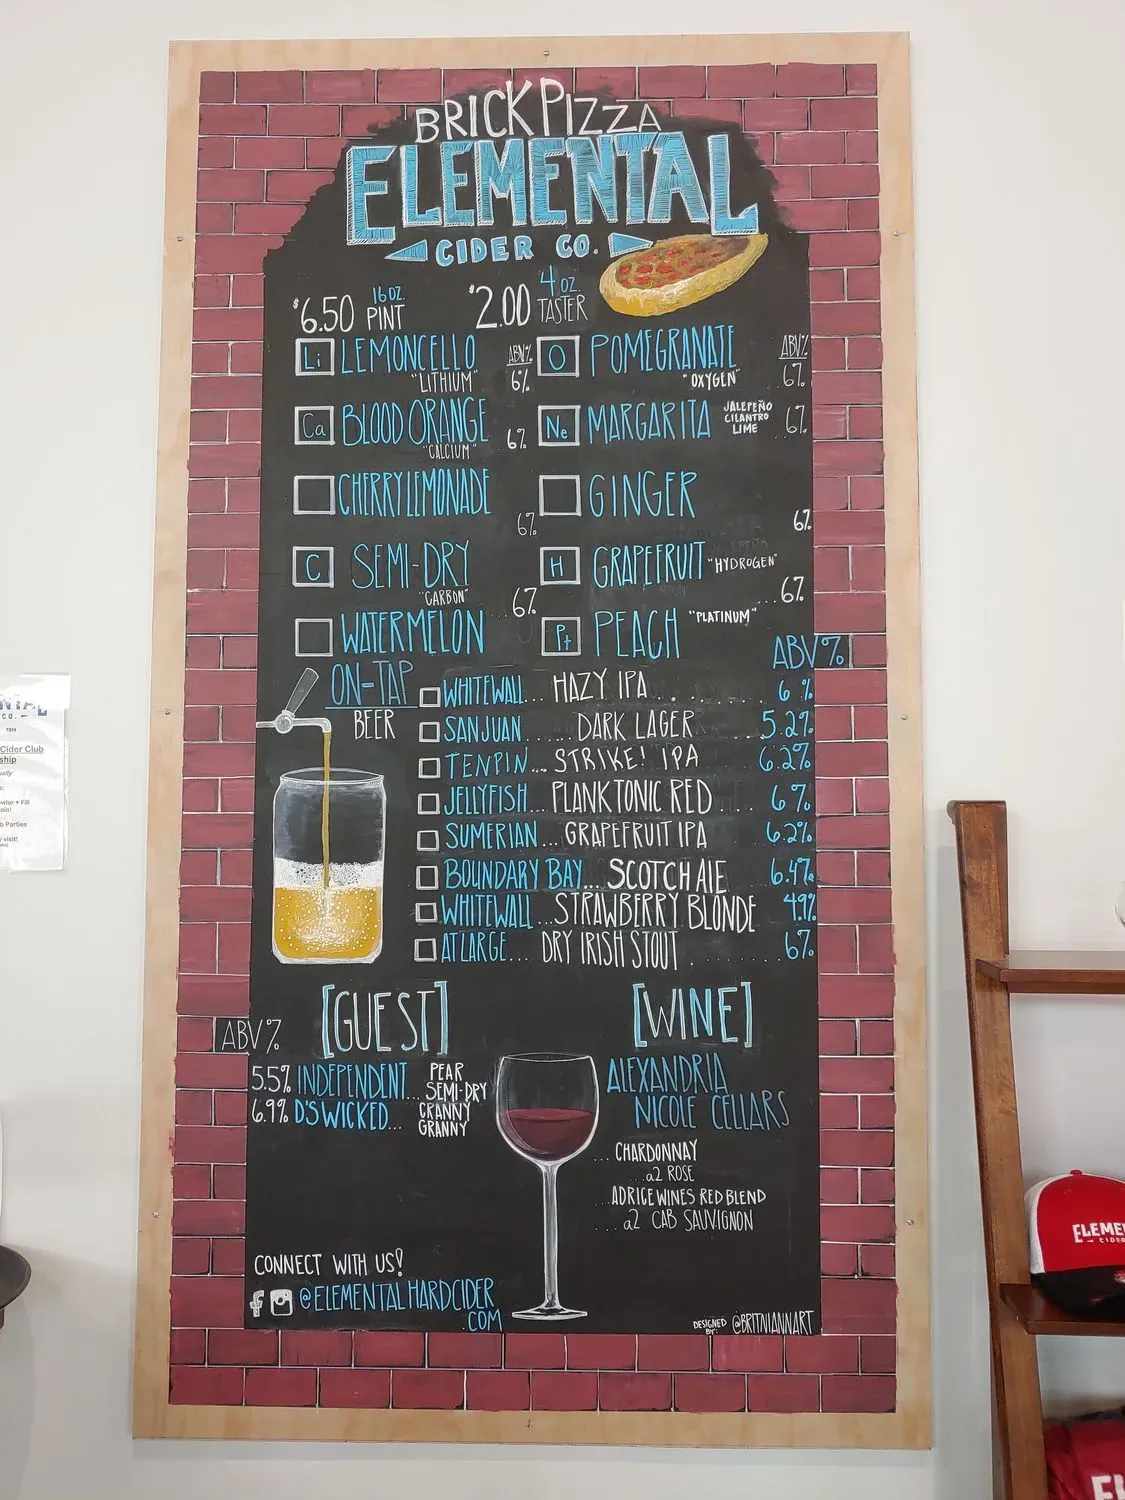 BRICK PIZZA
ELEMENTAL
CIDER CO.
$6.50 16 OZ. PINT
$2.00 4 OZ. TASTER
Li LEMONCELLO ABV%
"LITHIUM" 6%
O POMEGRANATE ABV%
"OXYGEN" 6%
Ca BLOOD ORANGE
"CALCIUM" 6%
Ne MARGARITA JALEPEÑO CILANTRO LIME 6%
CHERRY LEMONADE
6%
GINGER
6%
C SEMI-DRY
"CARBON" 6%
H GRAPEFRUIT "HYDROGEN"
6%
WATERMELON
Pt PEACH "PLATINUM"
ABV%
ON-TAP
BEER
WHITEWALL... HAZY IPA.... 6%
SANJUAN...... DARK LAGER 5.2%
TENPIN... STRIKE! IPA 6.2%
JELLYFISH... PLANKTONIC RED .... 6%
SUMERIAN... GRAPEFRUIT IPA 6.2%
BOUNDARY BAY... SCOTCH AlE 6.4%
WHITEWALL...STRAWBERRY BLONDE 4.9%
ATLARGE... DRY IRISH STOUT ....... 6%
[GUEST]
ABV%
5.5% INDEPENDENT... PEAR SEMI-DRY
6.9% D'S WICKED... CRANNY GRANNY
[WINE]
ALEXANDRIA
NICOLE CELLARS
... CHARDONNAY
...a2 ROSE
...ADRICE WINES RED BLEND
.... a2 CAB SAUVIGNON
CONNECT WITH US!
@ELEMENTALHARDCIDER
.COM
DESIGNED BY: @BRITNIANNART
Cider Club
ELEME
CIDER